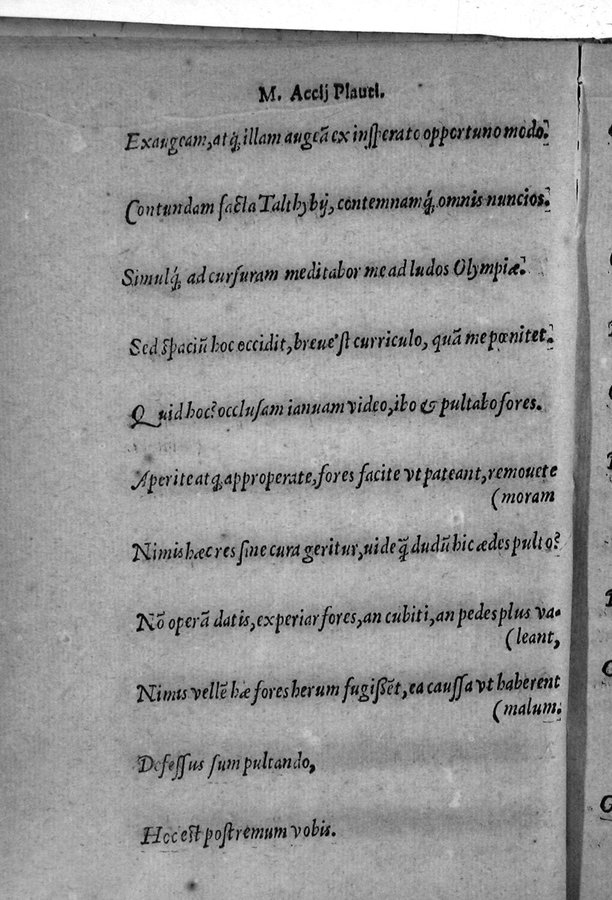 M. Accij Plauti.
Exaugeam, atq́; illam augeã ex insperato opportuno modo.
Contundam facta Talthybij, contemnamq́; omnis nuncios.
Simulq́; ad cursuram meditabor me ad ludos Olympiæ.
Sed spaciũ hoc occidit, breue'st curriculo, quã me pœnitet.
Quid hoc? occlusam ianuam video, ibo & pultabo fores.
Aperite atq; approperate, fores facite vt pateant, remouete
(moram
Nimis hæc res sine cura geritur, uide q̃ dudũ hic ædes pulto?
Nõ operã datis, experiar fores, an cubiti, an pedes plus va-
(leant,
Nimis vellẽ hæ fores herum fugissẽt, ea caussa vt haberent
(malum.
Defessus sum pultando,
Hoc est postremum vobis.